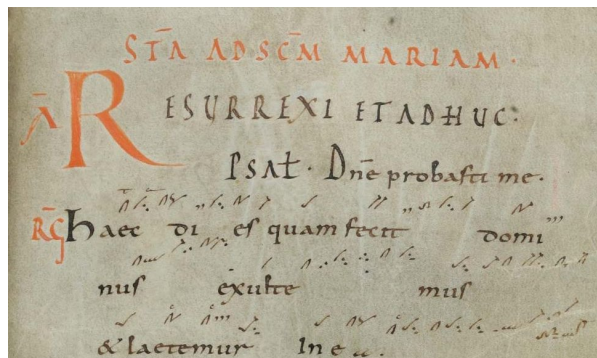 STĀ ADSC̄M MARIAM.
Ā RESURREXI ET ADHUC:
PSAŁ. Dn̄e probasti me.
RG Haec di es quam fecit domi
nus exulte mus
& laetemur In e a.